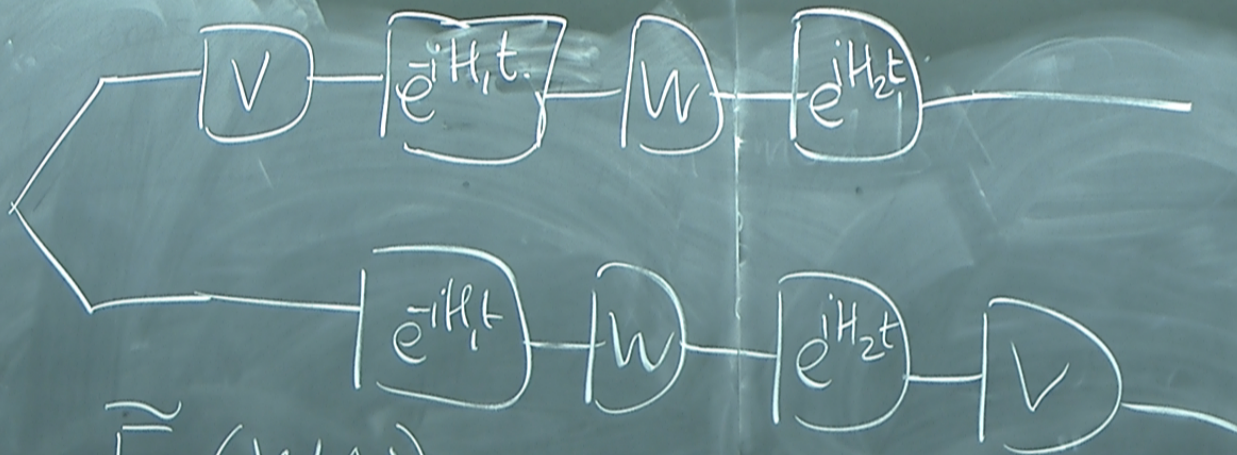 V e^{-iH_1t} W e^{iH_2t}
e^{-iH_1t} W e^{iH_2t} V